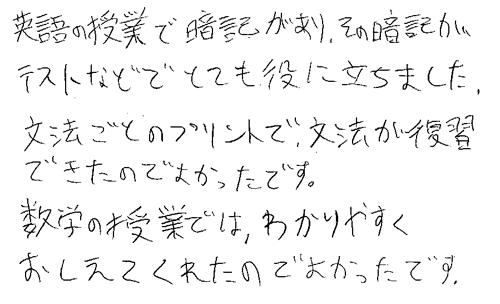 英語の授業で暗記があり,その暗記が
テストなどでとても役に立ちました,
文法ごとのプリントで,文法が復習
できたのでよかったです。
数学の授業では,わかりやすく
おしえてくれたのでよかったです,